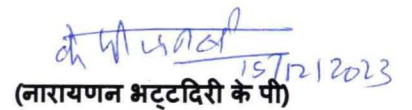 15/12/2023
(नारायणन भट्टदिरी के पी)